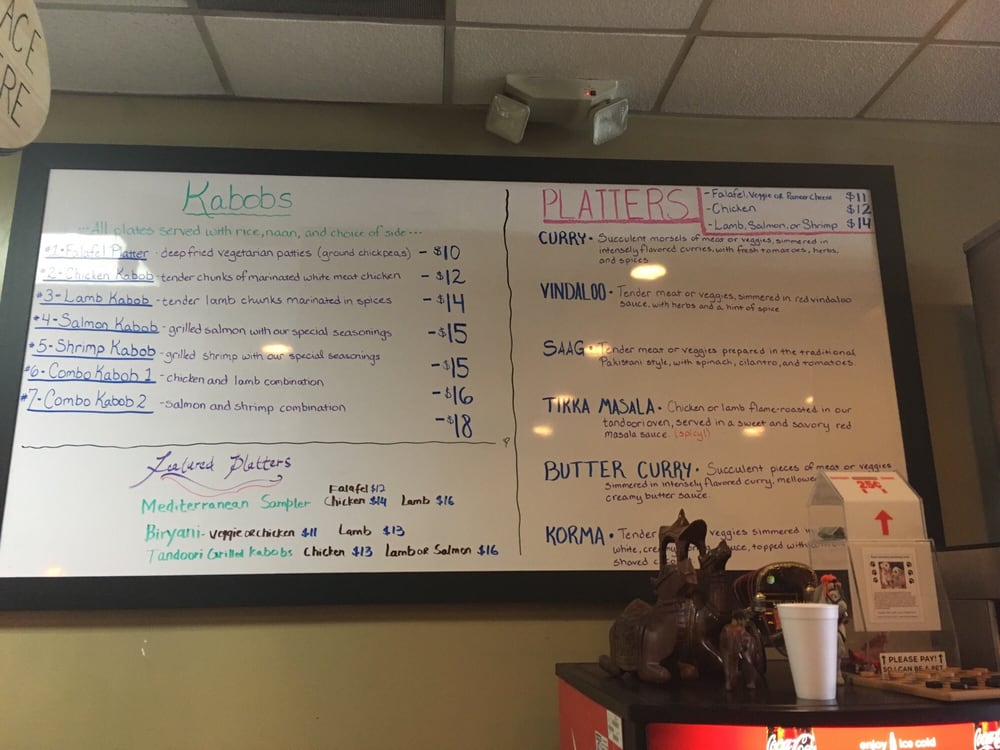 ACE
RE
Kabobs
--- All plates served with rice, naan, and choice of side ---
#1-Falafel Platter - deep fried vegetarian patties (ground chickpeas) - $10
#2-Chicken Kabob - tender chunks of marinated white meat chicken - $12
#3-Lamb Kabob - tender lamb chunks marinated in spices - $14
#4-Salmon Kabob - grilled salmon with our special seasonings - $15
#5-Shrimp Kabob - grilled shrimp with our special seasonings - $15
#6-Combo Kabob 1 - chicken and lamb combination - $16
#7-Combo Kabob 2 - salmon and shrimp combination - $18
Featured Platters
Mediterranean Sampler Falafel $12 Chicken $14 Lamb $16
Biryani - veggie or chicken $11 Lamb $13
Tandoori Grilled Kabobs Chicken $13 Lamb or Salmon $16
PLATTERS
- Falafel, Veggie or Paneer Cheese $11
- Chicken $12
- Lamb, Salmon, or Shrimp $14
CURRY • Succulent morsels of meat or veggies, simmered in
intensely flavored curries, with fresh tomatoes, herbs,
and spices
VINDALOO • Tender meat or veggies, simmered in red vindaloo
sauce, with herbs and a hint of spice
SAAG • Tender meat or veggies prepared in the traditional
Pakistani style, with spinach, cilantro, and tomatoes.
TIKKA MASALA • Chicken or lamb flame-roasted in our
tandoori oven, served in a sweet and savory red
masala sauce. (spicy!)
BUTTER CURRY • Succulent pieces of meat or veggies
simmered in intensely flavored curry, mellowe
creamy butter sauce.
KORMA • Tender veggies simmered
white, topped with
shaved
25¢
PLEASE PAY!
SO I CAN BE A PET
Coca-Cola
enjoy ice cold
Coca-Cola